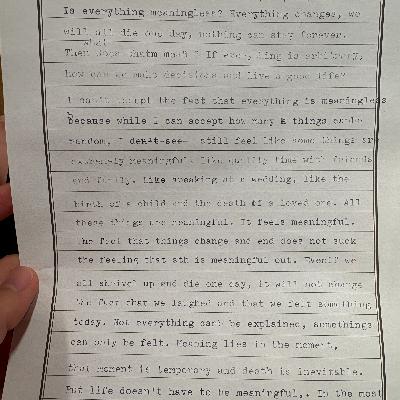 Is everything meaningless? Everything changes, we
will all die one day, nothing can stay forever.
what
Then does mean? If everything is arbitrary,
how can we make decisions and live a good life?
I can't accept the fact that everything is meaningless
because while I can accept how many things are
random, I still feel like some things ar
extremely meaningful. Like quality time with friends
and family. Like speaking at a wedding, like the
birth of a child and the death of a loved one. All
these things are meaningful. It feels meaningful.
The fact that things change and end does not suck
the feeling that sth is meaningful out. Even if we
all shrivel up and die one day, it will not change
the fact that we laughed and that we felt something
today. Not everything can be explained, somethings
can only be felt. Meaning lies in the moment,
that moment is temporary and death is inevitable.
But life doesn't have to be meaningful,. In the most